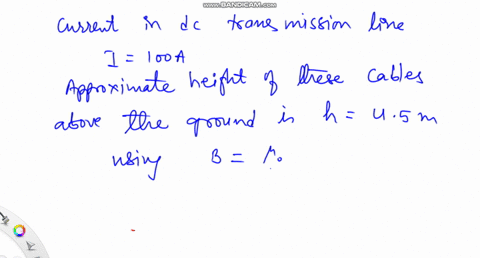 www.BANDICAM.com
Current in dc transmission line
I = 100A
Approximate height of these cables
above the ground is h = 4.5m
using B = μ₀